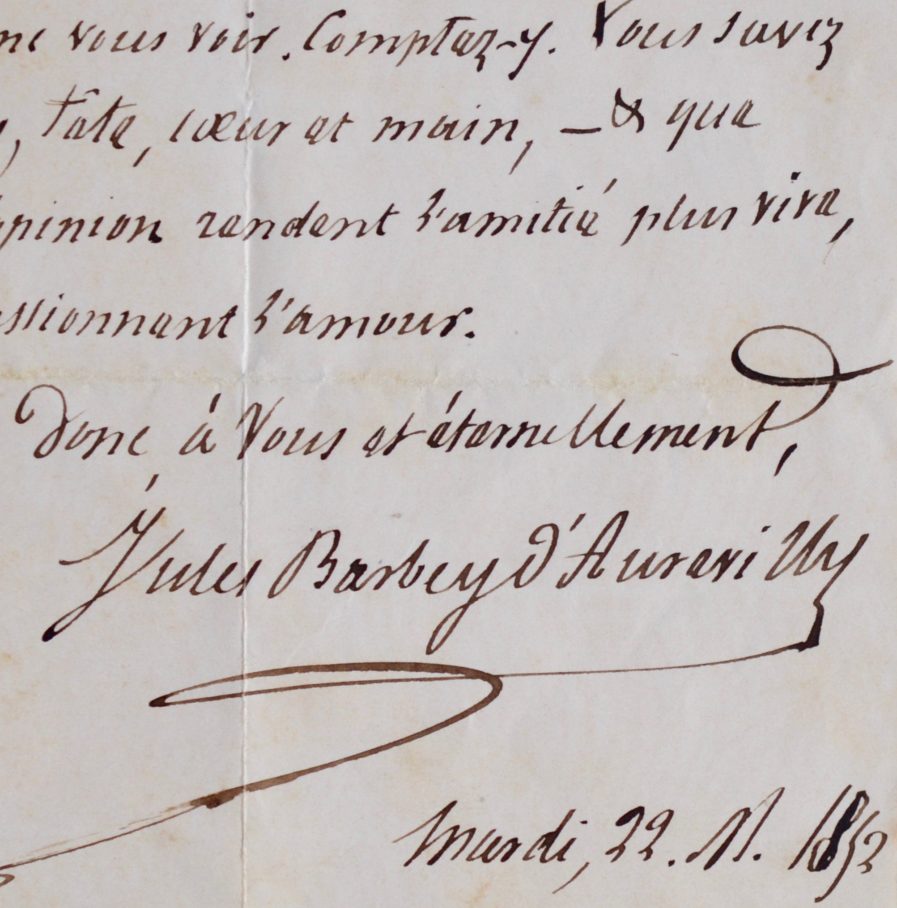 vous voir. Comptez-y. Vous savez
tête, cœur et main, – & que
opinion rendent l'amitié plus vive,
ssionnant l'amour.
Donc à Vous et éternellement,
Jules Barbey d'Aurevilly
Mardi, 22. M. 1852